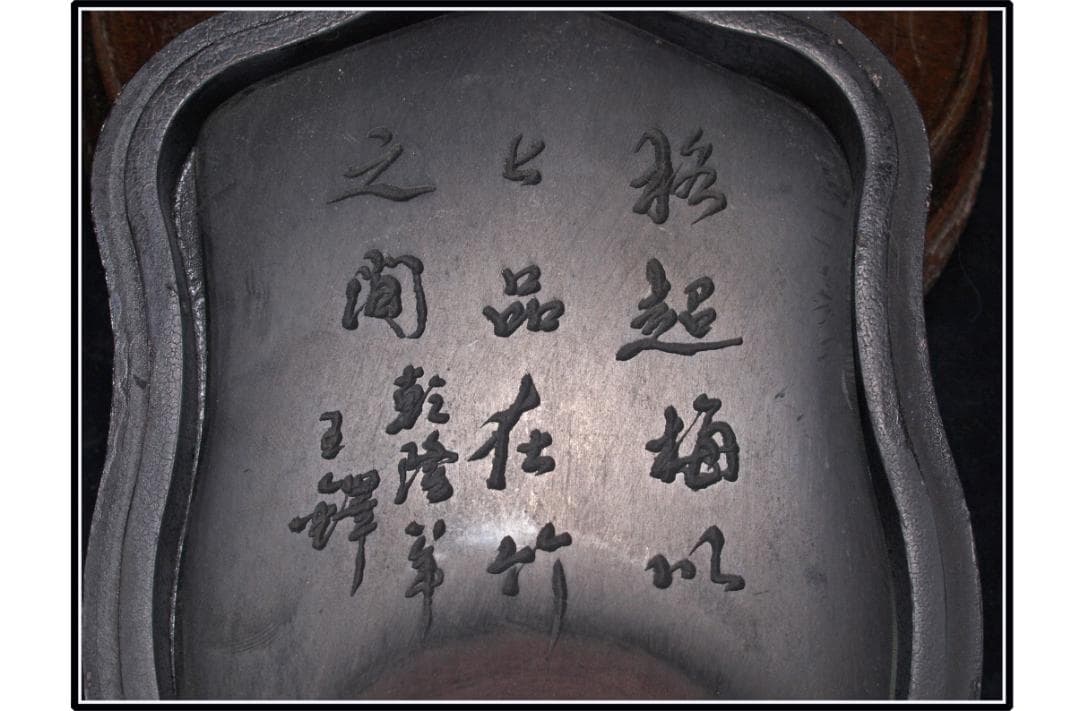 格超梅以
上品在竹
之間
乾隆年
王鐸